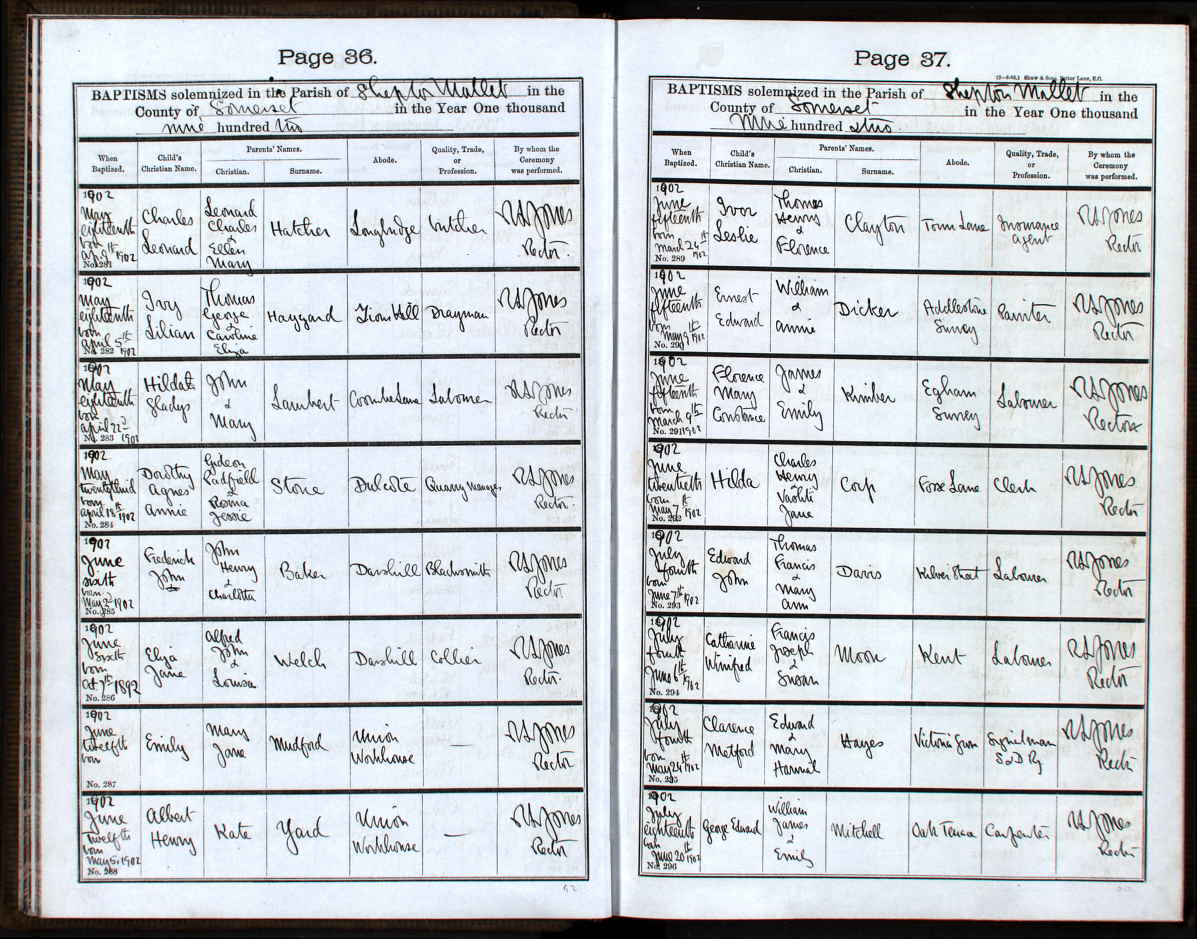 Page 36.
BAPTISMS solemnized in the Parish of Shepton Mallet in the
County of Somerset in the Year One thousand
nine hundred two
When Baptized. Child's Christian Name. Parents' Names. Christian. Surname. Abode. Quality, Trade, or Profession. By whom the Ceremony was performed.
1902
May eighteenth born April th 1902
No. 281
Charles Leonard
Leonard Charles & Ellen Mary
Hatcher
Longbridge
Butcher
Jones Rector.
1902
May eighteenth born April 5th 1902
No. 282
Ivy Lilian
Thomas George & Caroline Eliza
Hayward
Zion Hill
Drayman
Jones Rector
1902
May eighteenth born April 22d 1902
No. 283
Hilda Gladys
John & Mary
Lambert
Coombe Lane
Labourer
Jones Rector
1902
May born April 1902
No. 284
Dorothy Agnes Annie
Gideon Padfield & Rosina Jessie
Stone
Dulcote
Quarry Manager
Jones Rector.
1902
June sixth born May 2 1902
No. 285
Frederick John
John Henry & Charlotte
Baker
Darshill
Blacksmith
Jones Rector
1902
June sixth born Oct 7th 1892
No. 286
Eliza Jane
Alfred John & Louisa
Welch
Darshill
Collier
Jones Rector.
1902
June twelfth born
No. 287
Emily
Mary Jane
Mudford
Union Workhouse
—
Jones Rector
1902
June twelfth born May 5. 1902
No. 288
Albert Henry
Kate
Yard
Union Workhouse
—
Jones Rector
Page 37.
BAPTISMS solemnized in the Parish of Shepton Mallet in the
County of Somerset in the Year One thousand
Nine hundred two.
When Baptized. Child's Christian Name. Parents' Names. Christian. Surname. Abode. Quality, Trade, or Profession. By whom the Ceremony was performed.
1902
June fifteenth born March 24th 1902
No. 289
Ivor Leslie
Thomas Henry & Florence
Clayton
Town Lane
Insurance Agent
Jones Rector
1902
June fifteenth born May 9th 1902
No. 290
Ernest Edward
William & Annie
Dicker
Addlestone Surrey
Painter
Jones Rector
1902
June fifteenth born March 9th 1902
No. 291
Florence Mary Constance
James & Emily
Kimber
Egham Surrey
Labourer
Jones Rector
1902
June twentieth born May 7th 1902
No. 292
Hilda
Charles Henry & Vashti Jane
Corp
Fosse Lane
Clerk
Jones Rector
1902
July fourth born June 7th 1902
No. 293
Edward John
Thomas Francis & Mary Ann
Davis
Kilver Street
Labourer
Jones Rector
1902
July fourth born June 6th 1902
No. 294
Catharine Winifred
Francis Joseph & Susan
Moon
Kent
Labourer
Jones Rector
1902
July fourth born May 24th 1902
No. 295
Clarence Metford
Edward & Mary Hannah
Hayes
Victoria
Signalman S & D Ry
Jones Rector
1902
July eighteenth born June 20th 1902
No. 296
George Edward
William James & Emily
Mitchell
Oak Terrace
Carpenter
Jones Rector